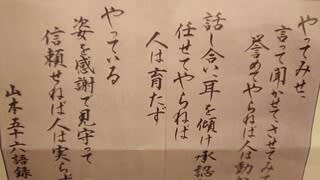 やってみせ、
言って聞かせて、させてみて
誉めてやらねば人は動か
話し合い、耳を傾け承認
任せてやらねば
人は育たず
やっている
姿を感謝で見守って
信頼せねば人は実らず
山本五十六語録